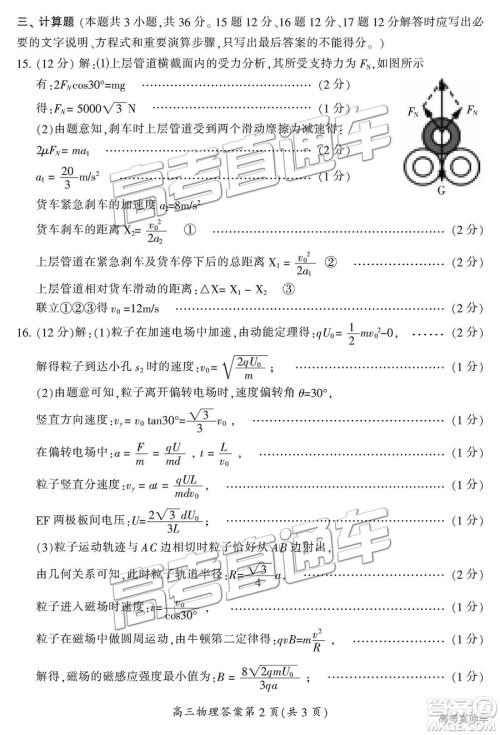 三、计算题（本题共3小题，共36分。15题12分、16题12分、17题12分解答时应写出必
要的文字说明、方程式和重要演算步骤，只写出最后答案的不能得分。）
15.(12分)解：(1)上层管道横截面内的受力分析，其所受支持力为 F_N，如图所示
有：2F_N cos30°=mg ………… (2分)
得：F_N = 5000√3 N ………… (1分)
(2)由题意知，刹车时上层管道受到两个滑动摩擦力减速得：
2μF_N = ma₁ ………… (2分)
a₁ = 20/3 m/s² ………… (1分)
F_N F_N
G
货车紧急刹车的加速度 a₂=8m/s²
货车刹车的距离 X₂ = v₀²/2a₂ ① ………… (2分)
上层管道在紧急刹车及货车停下后的总距离 X₁ = v₀²/2a₁ ② ………… (2分)
上层管道相对货车滑动的距离：△X= X₁ - X₂ ③
联立①②③得 v₀ =12m/s ………… (2分)
16.(12分)解：(1)粒子在加速电场中加速，由动能定理得：qU₀ = 1/2 mv₀²-0， …… (2分)
解得粒子到达小孔 s₂ 时的速度：v₀ = √(2qU₀/m)； ………… (1分)
(2)由题意可知，粒子离开偏转电场时，速度偏转角 θ=30°，
竖直方向速度：v_y = v₀ tan30°= √3/3 v₀， ………… (1分)
在偏转电场中：a = F/m = qU/md，t = L/v₀ ………… (1分)
粒子竖直分速度：v_y = at = qUL/mdv₀， ………… (1分)
EF 两极板间电压：U= 2√3 dU₀/3L； ………… (1分)
(3)粒子运动轨迹与 AC 边相切时粒子恰好从 AB 边射出，
由几何关系可知，此时粒子轨道半径：R= √3/4 a， ………… (2分)
粒子进入磁场时速度：v= v₀/cos30° ………… (1分)
粒子在磁场中做圆周运动，由牛顿第二定律得：qvB=m v²/R， ………… (1分)
解得，磁场的磁感应强度最小值：B = 8√(2qmU₀)/3qa； ………… (1分)
高三物理答案第 2 页(共 3 页)
高考直通车
高考直通车
高考直通车